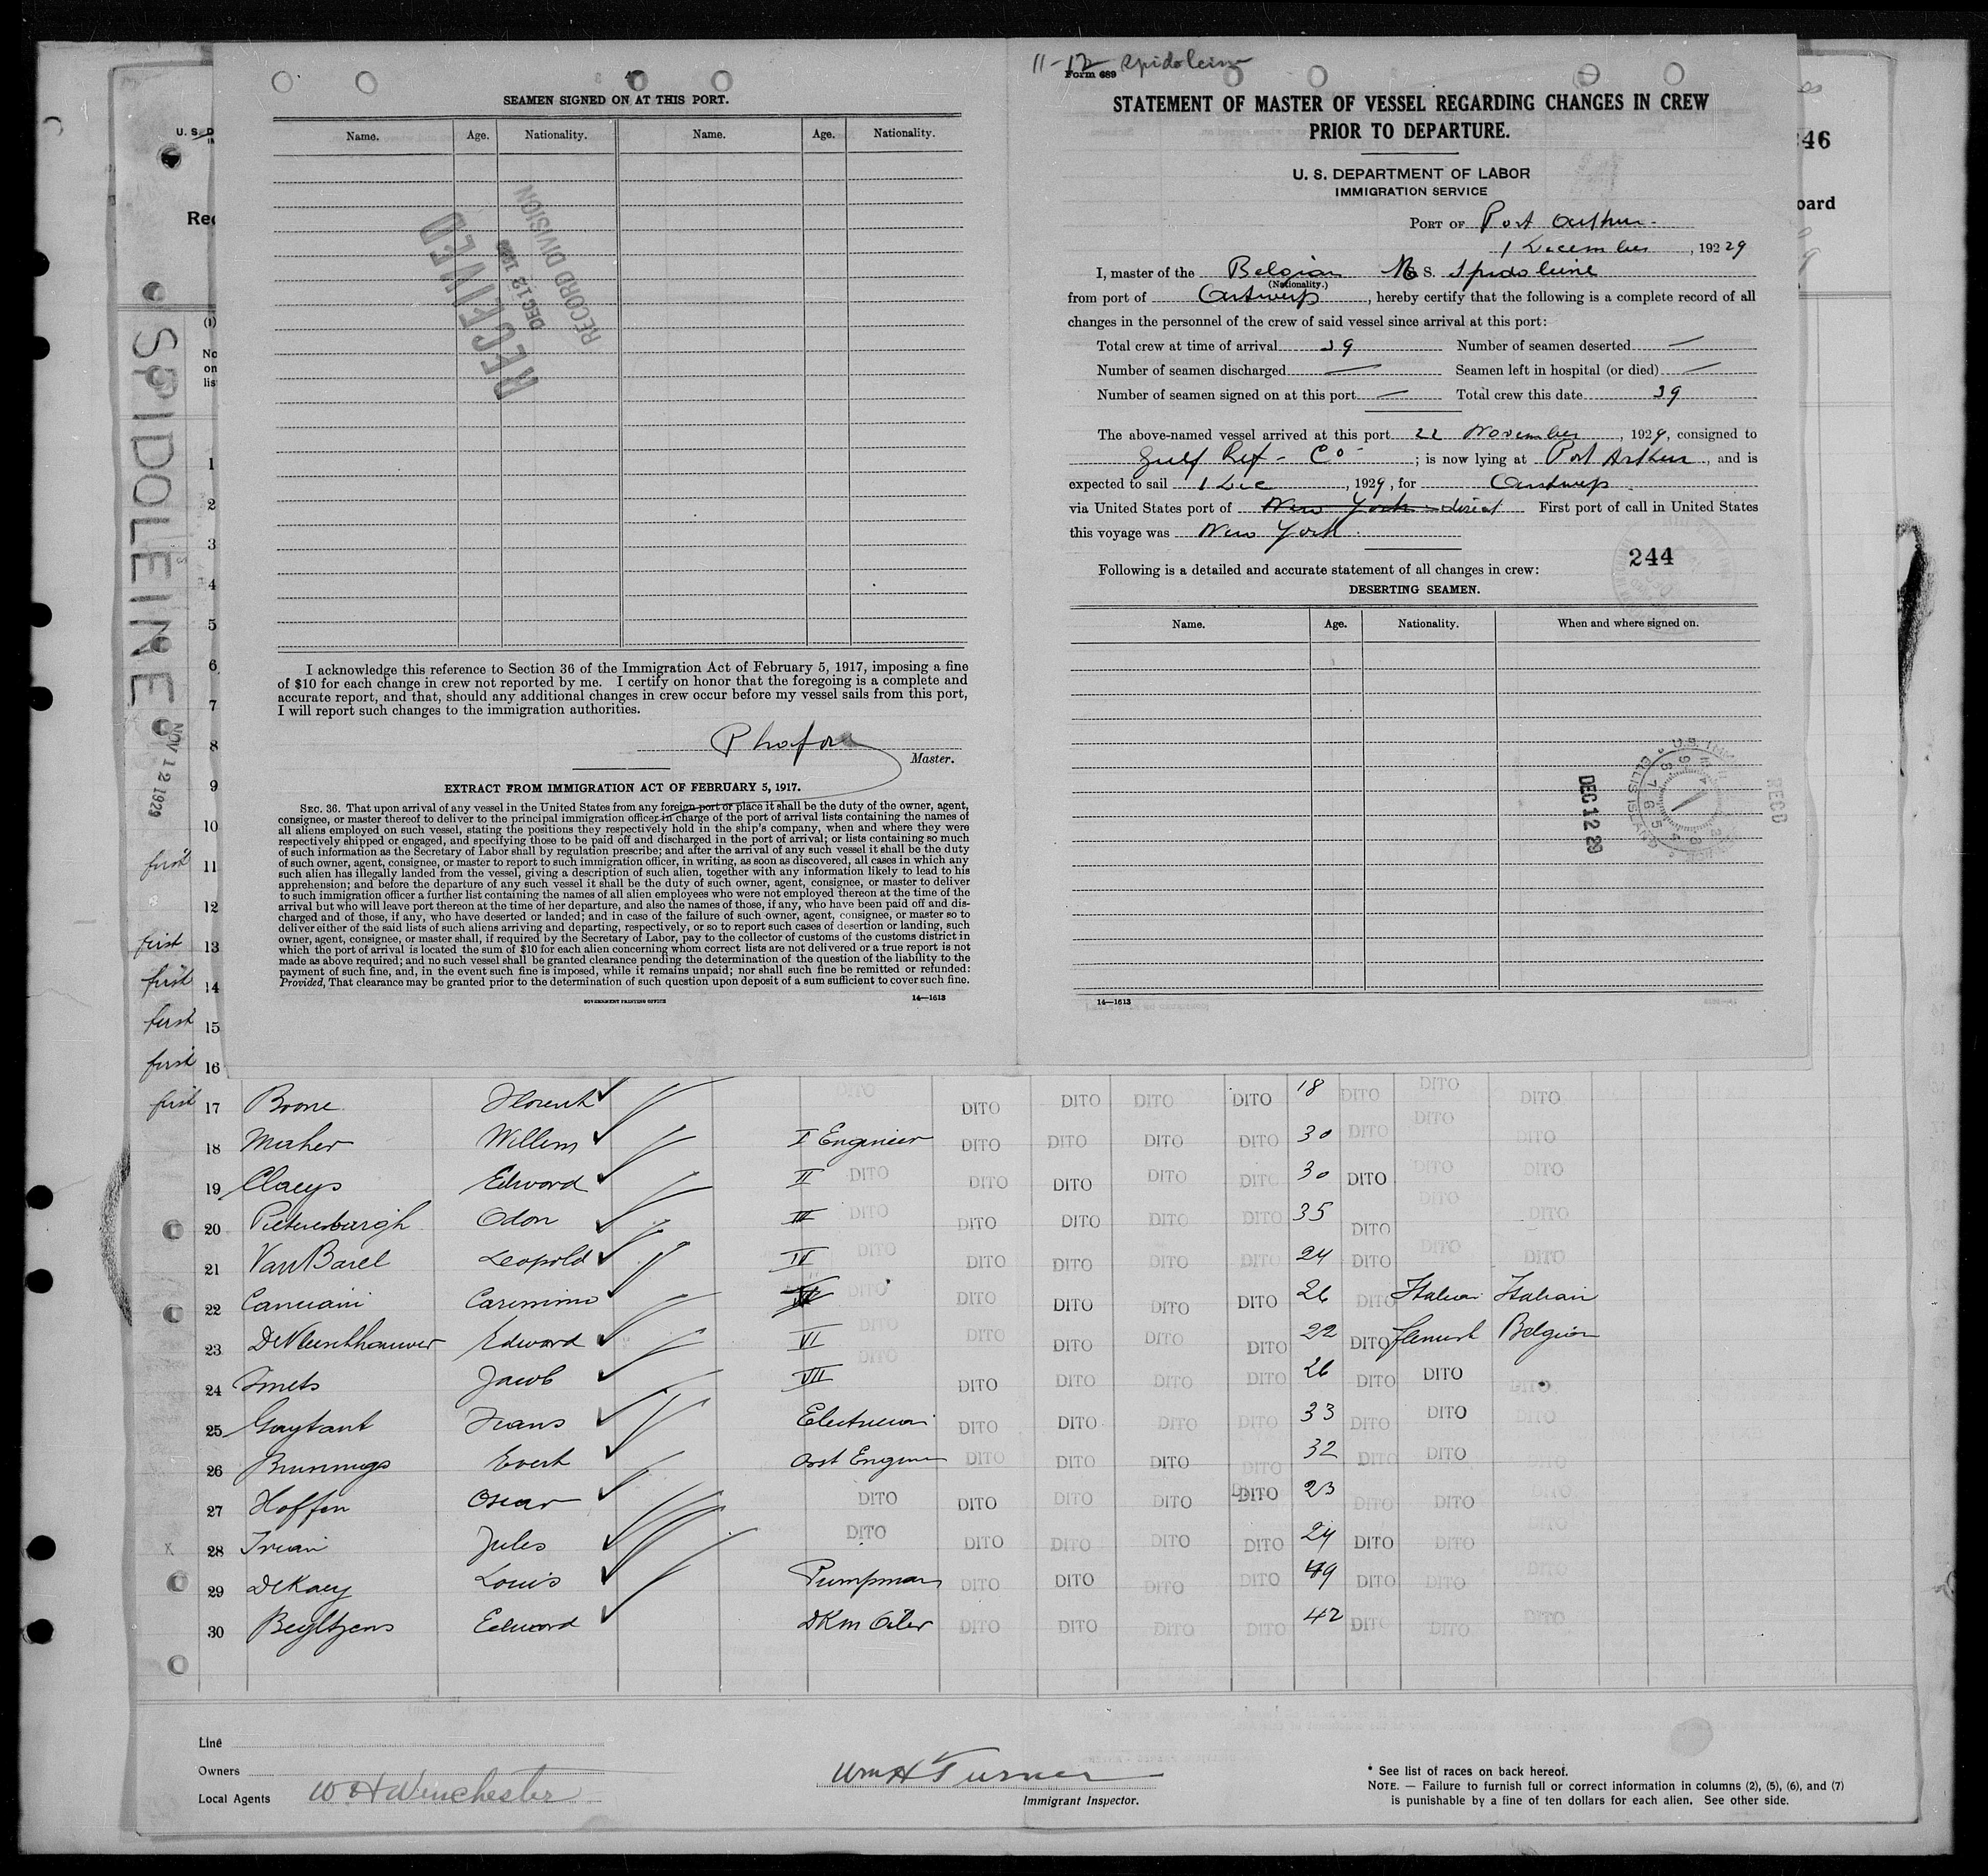 SEAMEN SIGNED ON AT THIS PORT.
Name. Age. Nationality. Name. Age. Nationality.
RECEIVED
DEC 12 19
RECORD DIVISION
I acknowledge this reference to Section 36 of the Immigration Act of February 5, 1917, imposing a fine
of $10 for each change in crew not reported by me. I certify on honor that the foregoing is a complete and
accurate report, and that, should any additional changes in crew occur before my vessel sails from this port,
I will report such changes to the immigration authorities.
Master.
EXTRACT FROM IMMIGRATION ACT OF FEBRUARY 5, 1917.
SEC. 36. That upon arrival of any vessel in the United States from any foreign port or place it shall be the duty of the owner, agent,
consignee, or master thereof to deliver to the principal immigration officer in charge of the port of arrival lists containing the names of
all aliens employed on such vessel, stating the positions they respectively hold in the ship's company, when and where they were
respectively shipped or engaged, and specifying those to be paid off and discharged in the port of arrival; or lists containing so much
of such information as the Secretary of Labor shall by regulation prescribe; and after the arrival of any such vessel it shall be the duty
of such owner, agent, consignee, or master to report to such immigration officer, in writing, as soon as discovered, all cases in which any
such alien has illegally landed from the vessel, giving a description of such alien, together with any information likely to lead to his
apprehension; and before the departure of any such vessel it shall be the duty of such owner, agent, consignee, or master to deliver
to such immigration officer a further list containing the names of all alien employees who were not employed thereon at the time of the
arrival but who will leave port thereon at the time of her departure, and also the names of those, if any, who have been paid off and dis-
charged and of those, if any, who have deserted or landed; and in case of the failure of such owner, agent, consignee, or master so to
deliver either of the said lists of such aliens arriving and departing, respectively, or so to report such cases of desertion or landing, such
owner, agent, consignee, or master shall, if required by the Secretary of Labor, pay to the collector of customs of the customs district in
which the port of arrival is located the sum of $10 for each alien concerning whom correct lists are not delivered or a true report is not
made as above required; and no such vessel shall be granted clearance pending the determination of the question of the liability to the
payment of such fine, and, in the event such fine is imposed, while it remains unpaid; nor shall such fine be remitted or refunded:
Provided, That clearance may be granted prior to the determination of such question upon deposit of a sum sufficient to cover such fine.
GOVERNMENT PRINTING OFFICE 14—1613
11-12 Spidoleine
Form 689
STATEMENT OF MASTER OF VESSEL REGARDING CHANGES IN CREW
PRIOR TO DEPARTURE.
U. S. DEPARTMENT OF LABOR
IMMIGRATION SERVICE
PORT OF Port Arthur
1 December, 19229
I, master of the Belgian M S. Spidoleine
(Nationality.)
from port of Antwerp, hereby certify that the following is a complete record of all
changes in the personnel of the crew of said vessel since arrival at this port:
Total crew at time of arrival 39 Number of seamen deserted —
Number of seamen discharged — Seamen left in hospital (or died) —
Number of seamen signed on at this port — Total crew this date 39
The above-named vessel arrived at this port 22 November, 1929, consigned to
Gulf Ref - Co; is now lying at Port Arthur, and is
expected to sail 1 Dec, 1929, for Antwerp.
via United States port of New York direct First port of call in United States
this voyage was New York.
244
Following is a detailed and accurate statement of all changes in crew:
DESERTING SEAMEN.
Name. Age. Nationality. When and where signed on.
DEC 12 29
ELLIS ISLAND
REC'D
14—1613
U. S. D
Rec
(1)
No
on
lis
46
oard
SPIDOLEINE
NOV 12 1929
1
2
3
4
5
6
7
8
9
10
first 11
12
first 13
first 14
first 15
first 16
first 17 Boone Florent DITO DITO DITO DITO DITO 18 DITO DITO DITO
18 Willem I Engineer DITO DITO DITO DITO 30 DITO DITO DITO
19 Claeys Edward II DITO DITO DITO DITO DITO 30 DITO DITO DITO
20 Odon III DITO DITO DITO DITO DITO 35 DITO DITO DITO
21 Van Barel Leopold IV DITO DITO DITO DITO DITO 24 DITO DITO DITO
22 Canciani DITO DITO DITO DITO DITO 26 DITO Italian Italian
23 Edward VI DITO DITO DITO DITO DITO 22 DITO flemish Belgian
24 Smets Jacob VII DITO DITO DITO DITO DITO 26 DITO DITO DITO
25 Gaytant Frans Electrician DITO DITO DITO DITO 33 DITO DITO DITO
26 Brunnings Evert Asst Engineer DITO DITO DITO DITO 32 DITO DITO DITO
27 Hoffen Oscar DITO DITO DITO DITO DITO 23 DITO DITO DITO
28 Jules DITO DITO DITO DITO DITO 24 DITO DITO DITO
29 DeKaey Louis Pumpman DITO DITO DITO DITO 49 DITO DITO DITO
30 Beyltjens Edward DKm Oiler DITO DITO DITO DITO 42 DITO DITO DITO
Line
Owners
Local Agents W H Winchester
Wm H Turner
Immigrant Inspector.
* See list of races on back hereof.
NOTE. — Failure to furnish full or correct information in columns (2), (5), (6), and (7)
is punishable by a fine of ten dollars for each alien. See other side.